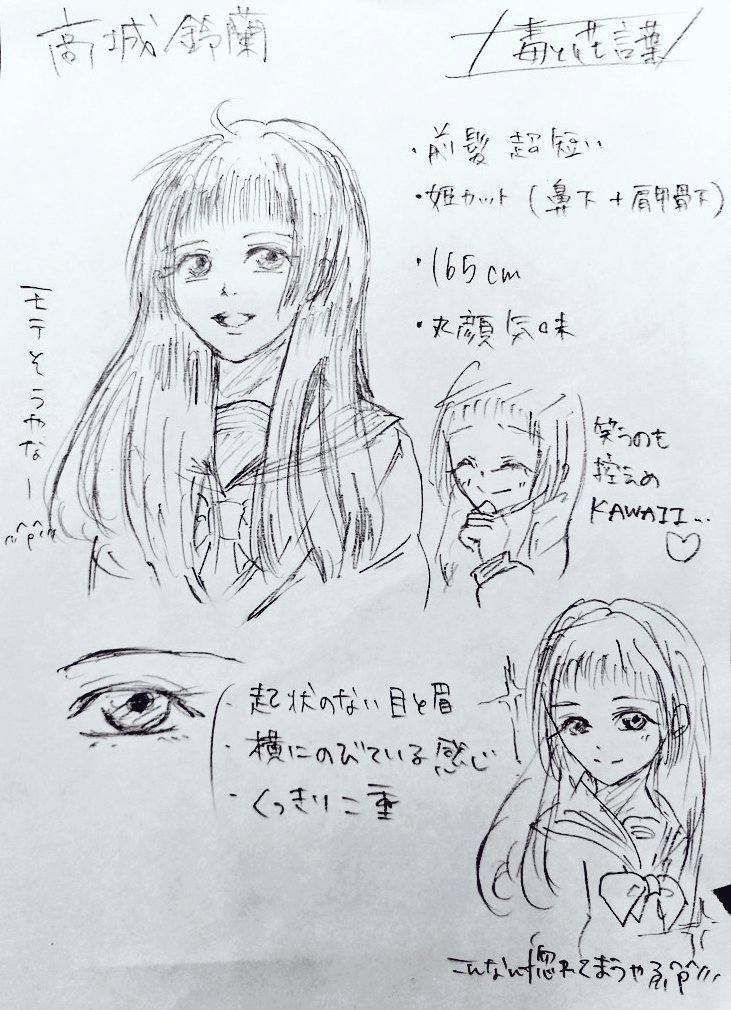 高城 鈴蘭
毒と花言葉
・前髪 超短い
・姫カット (鼻下 + 肩甲骨下)
・165cm
・丸顔気味
モテそうやなー
笑うのも
控えめ
KAWAII...♡
・起状のない目と眉
・横にのびている感じ
・くっきり二重
こんなん惚れてまうやろ